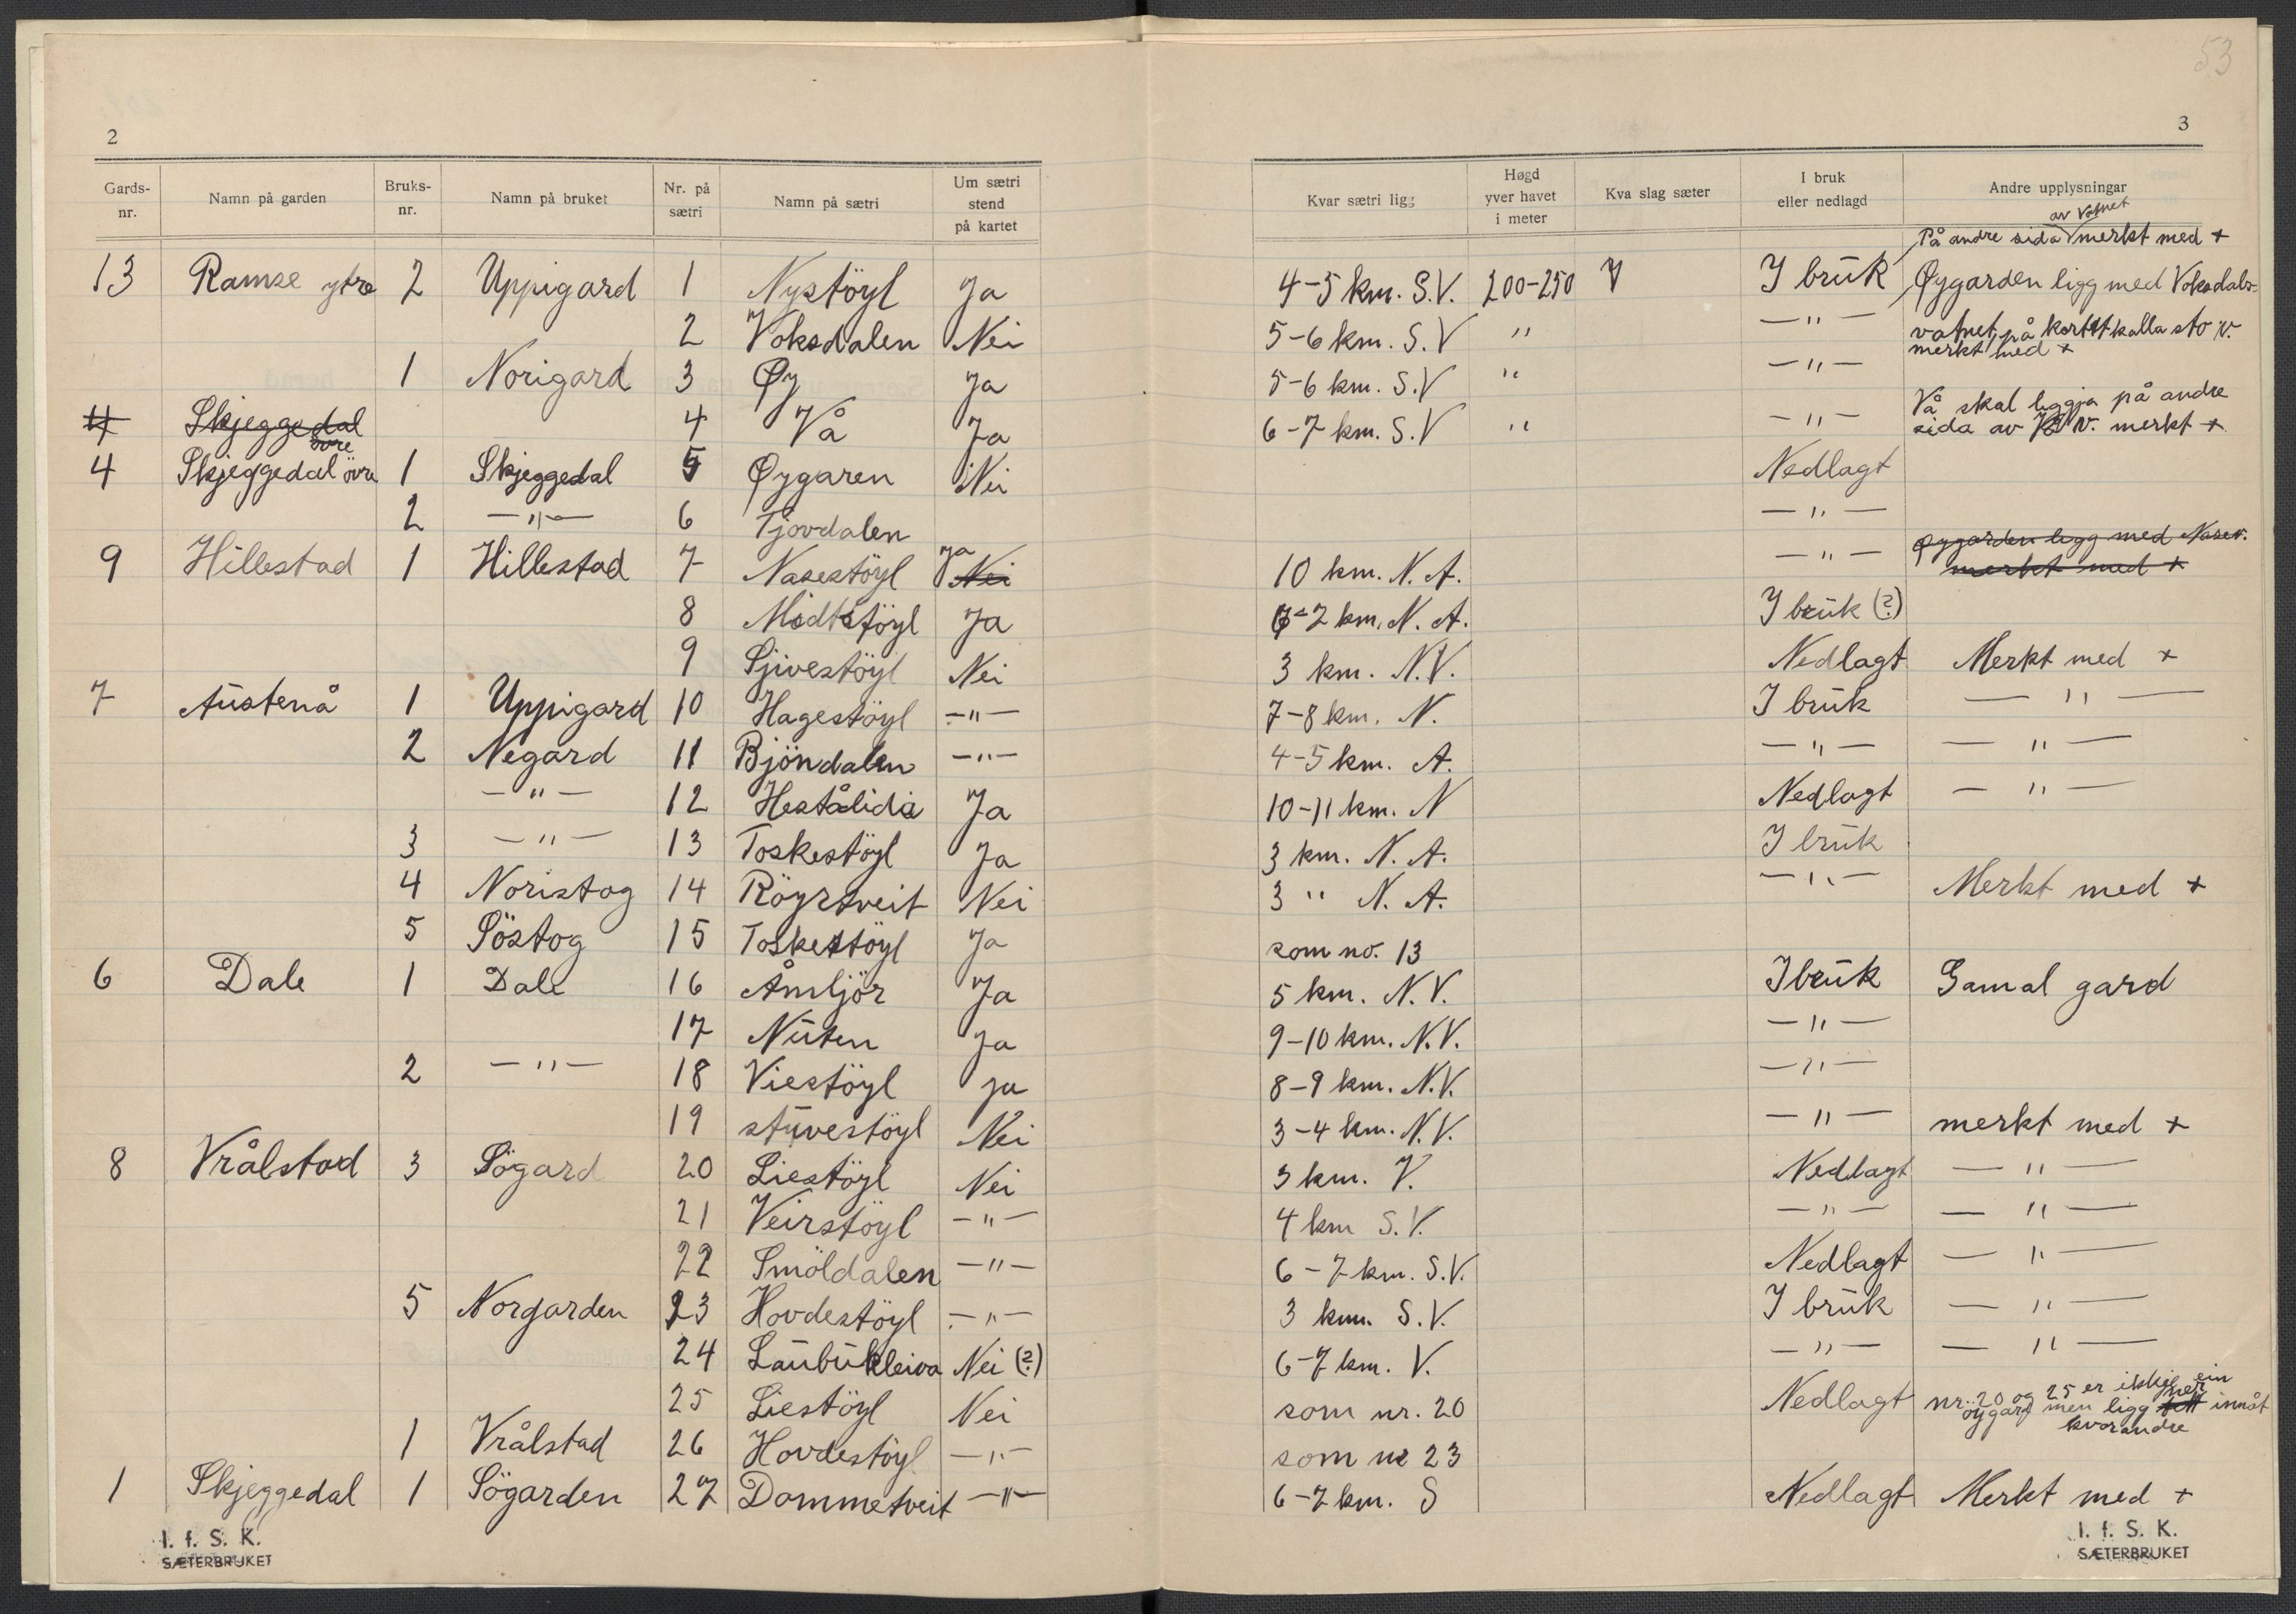 53
2
3
Gards-nr. Namn på garden Bruks-nr. Namn på bruket Nr. på sætri Namn på sætri Um sætri stend på kartet Kvar sætri ligg Høgd yver havet i meter Kva slag sæter I bruk eller nedlagd Andre upplysningar
På andre sida av Vatnet merkt med +
13 Ramse ytre 2 Uppigard 1 Nystöyl Ja 4-5 km. S.V. 200-250 V I bruk Øygarden ligg med Voksdals-
2 Voksdalen Nei 5-6 km. S.V " —"— vatnet, på kortet kalla sto v. merkt med +
1 Norigard 3 Øy Ja 5-6 km. S.V " —"—
4 Skjeggedal övre 4 Vå Ja 6-7 km. S.V " —"— Vå skal liggja på andre sida av V. merkt +
4 Skjeggedal övre 1 Skjeggedal 5 Øygaren Nei Nedlagt
2 —"— 6 Tjovdalen —"—
9 Hillestad 1 Hillestad 7 Nasestöyl Ja Nei 10 km. N. A. —"— Øygarden ligg med Nasev. merkt med +
8 Midtstöyl Ja 6-7 km. N. A. I bruk (?)
9 Sjivestöyl Nei 3 km. N.V. Nedlagt Merkt med +
7 Austenå 1 Uppigard 10 Hagestöyl —"— 7-8 km. N. I bruk —"—
2 Negard 11 Bjöndalen —"— 4-5 km. A. —"— —"—
—"— 12 Hestålidia Ja 10-11 km. N Nedlagt —"—
3 —"— 13 Toskestöyl Ja 3 km. N. A. I bruk
4 Noristog 14 Röyrtveit Nei 3 " N. A. —"— Merkt med +
5 Söstog 15 Toskestöyl Ja som no. 13
6 Dale 1 Dale 16 Åmljör Ja 5 km. N.V. I bruk Gamal gard
17 Nuten Ja 9-10 km. N.V. —"—
2 —"— 18 Viestöyl Ja 8-9 km. N.V. —"—
19 stuvestöyl Nei 3-4 km. N.V. —"— merkt med +
8 Vrålstad 3 Sögard 20 Liestöyl Nei 3 km. V. Nedlagt —"—
21 Veirstöyl —"— 4 km S.V. —"— —"—
22 Smöldalen —"— 6-7 km. S.V. Nedlagt —"—
5 Norgarden 23 Hovdestöyl —"— 3 km. S.V. I bruk —"—
24 Laubukleiva Nei (?) 6-7 km. V. —"— —"—
25 Liestöyl Nei som nr. 20 Nedlagt nr. 20 og 25 er ikkje ein öygard men ligg nær innåt kvorandre
1 Vrålstad 26 Hovdestöyl —"— som nr 23
1 Skjeggedal 1 Sögarden 27 Dommetveit —"— 6-7 km. S Nedlagt Merkt med +
I. f. S. K.
SÆTERBRUKET
I. f. S. K.
SÆTERBRUKET